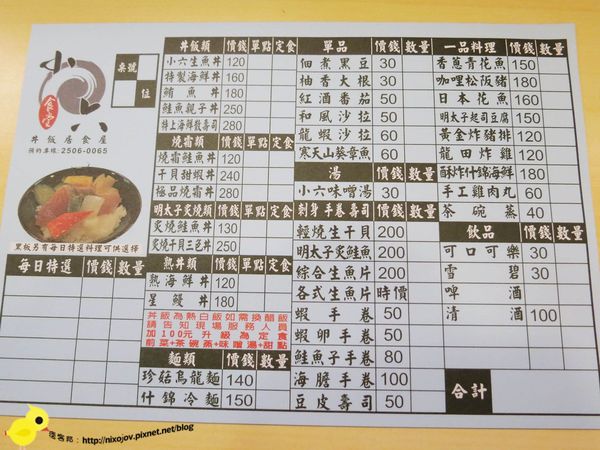 小六
食堂
丼飯居食屋
預約專線:2506-0065
桌號
位
黑板另有每日特選料理可供選擇
每日特選 價錢 數量
丼飯類 價錢 單點 定食
小六生魚丼 120
特製海鮮丼 160
鮪魚丼 160
鮭魚親子丼 250
特上海鮮散壽司 280
燒霜類 價錢 單點 定食
燒霜鮭魚丼 120
干貝甜蝦丼 240
極品燒霜丼 280
明太子炙燒類 價錢 單點 定食
炙燒鮭魚丼 130
炙燒干貝三色丼 250
熱丼類 價錢 單點 定食
熱海鮮丼 120
星鰻丼 180
丼飯為熱白飯如需換醋飯
請告知現場服務人員
加100元升級為定食
前菜+茶碗蒸+味噌湯+甜點
麵類 價錢 數量
珍菇烏龍麵 140
什錦冷麵 150
單品 價錢 數量
佃煮黑豆 30
柚香大根 30
紅酒番茄 50
和風沙拉 50
龍蝦沙拉 60
寒天山葵章魚 60
湯 價錢 數量
小六味噌湯 30
刺身手卷壽司 價錢 數量
輕燒生干貝 200
明太子炙鮭魚 200
綜合生魚片 200
各式生魚片 時價
蝦手卷 50
蝦卵手卷 50
鮭魚子手卷 80
海膽手卷 100
豆皮壽司 50
一品料理 價錢 數量
香蔥青花魚 150
咖哩松阪豬 180
日本花魚 160
明太子起司豆腐 150
黃金炸豬排 120
龍田炸雞 120
酥炸什錦海鮮 180
手工雞肉丸 60
茶碗蒸 40
飲品 價錢 數量
可口可樂 30
雪碧 30
啤酒
清酒 100
合計
痞客邦:http://nixojov.pixnet.net/blog